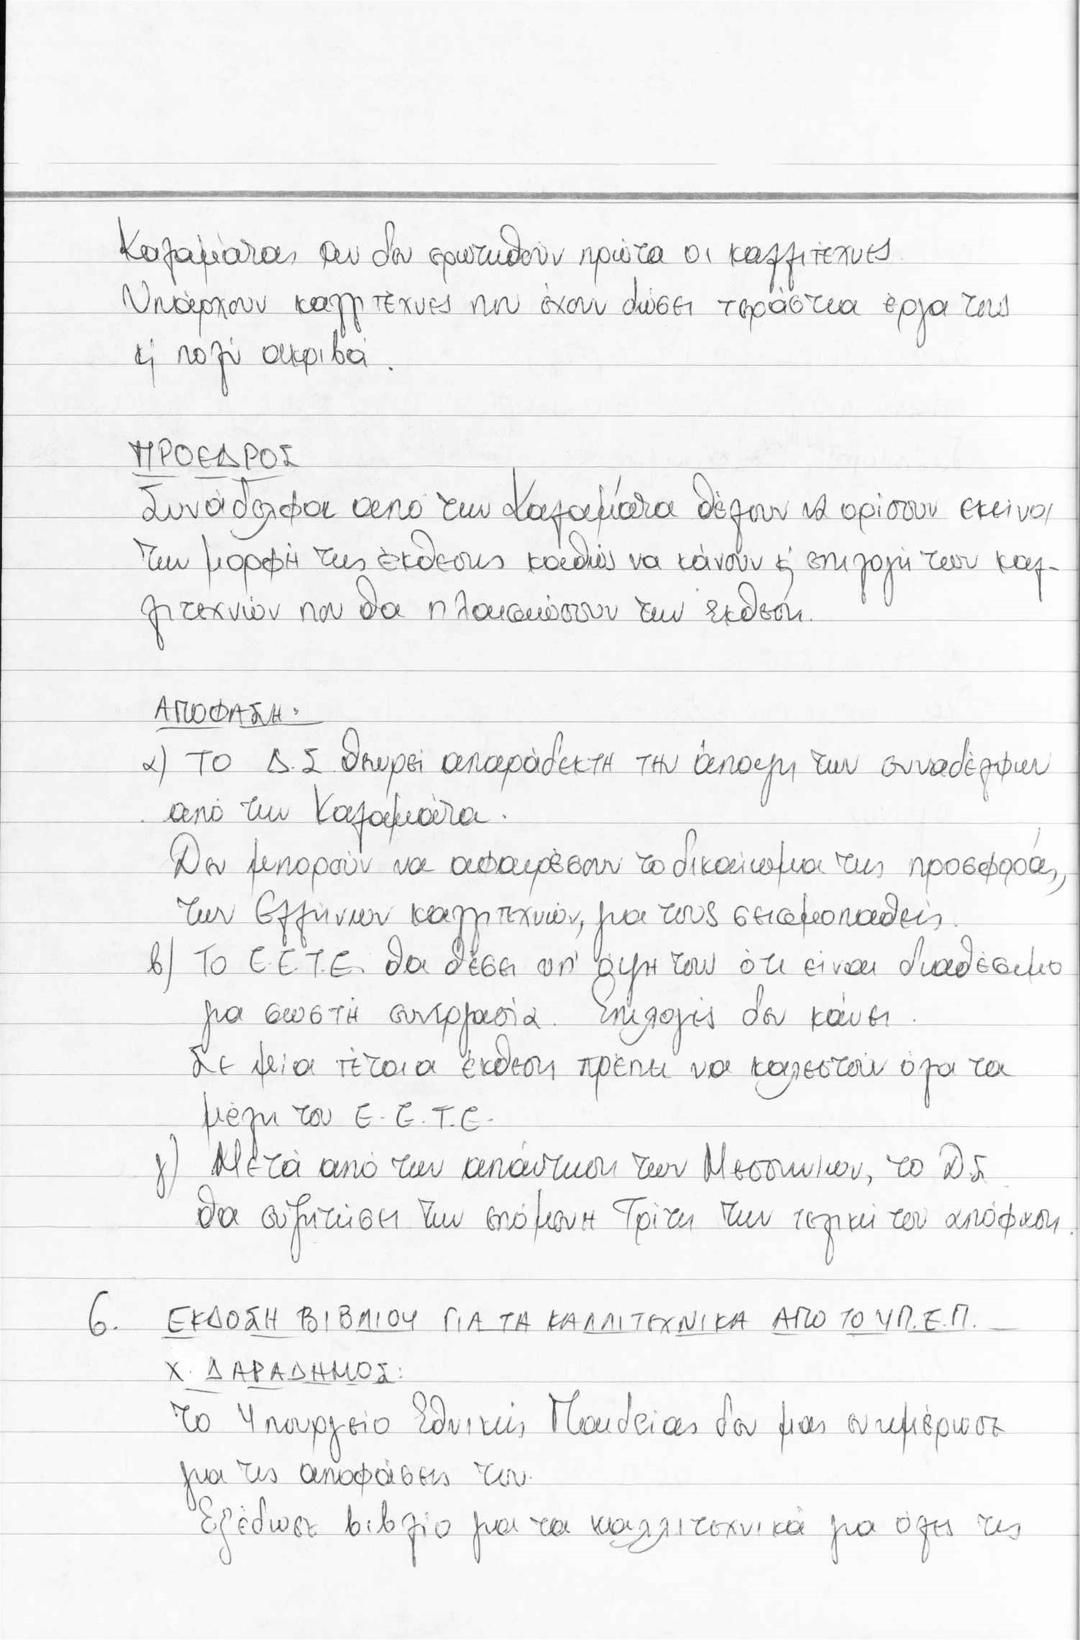 Καλαμάτας αν δεν ερωτηθούν πρώτα οι καλλιτέχνες.
Υπάρχουν καλλιτέχνες που έχουν δώσει τεράστια έργα τους
κ' πολύ ακριβά.
ΠΡΟΕΔΡΟΣ
Συνάδελφοι από την Καλαμάτα θέλουν να ορίσουν εκείνοι
την μορφή της έκθεσης καθώς να κάνουν κ' επιλογή των καλ-
λιτεχνών που θα πλαισιώσουν την έκθεση.
ΑΠΟΦΑΣΗ:
α) ΤΟ Δ.Σ θεωρεί απαράδεκτη την άποψη των συναδέλφων
από την Καλαμάτα.
Δεν μπορούν να αφαιρέσουν το δικαίωμα της προσφοράς,
των Ελλήνων καλλιτεχνών, για τους σεισμοπαθείς.
β) Το Ε.Ε.Τ.Ε. θα θέσει υπ' όψη τους ότι είναι διαθέσιμο
για σωστή συνεργασία. Επιλογές δεν κάνει.
Σε μία τέτοια έκθεση πρέπει να καλεστούν όλα τα
μέλη του Ε.Ε.Τ.Ε.
γ) Μετά από την απάντηση των Μεσσηνίων, το ΔΣ
θα συζητήσει την επόμενη Τρίτη την τελική του απόφαση.
6. ΕΚΔΟΣΗ ΒΙΒΛΙΟΥ ΓΙΑ ΤΑ ΚΑΛΛΙΤΕΧΝΙΚΑ ΑΠΟ ΤΟ ΥΠ.Ε.Π.
Χ. ΔΑΡΑΔΗΜΟΣ:
Το Υπουργείο Εθνικής Παιδείας δεν μας ενημέρωσε
για τις αποφάσεις του.
Εξέδωσε βιβλίο για τα καλλιτεχνικά για όλες τις